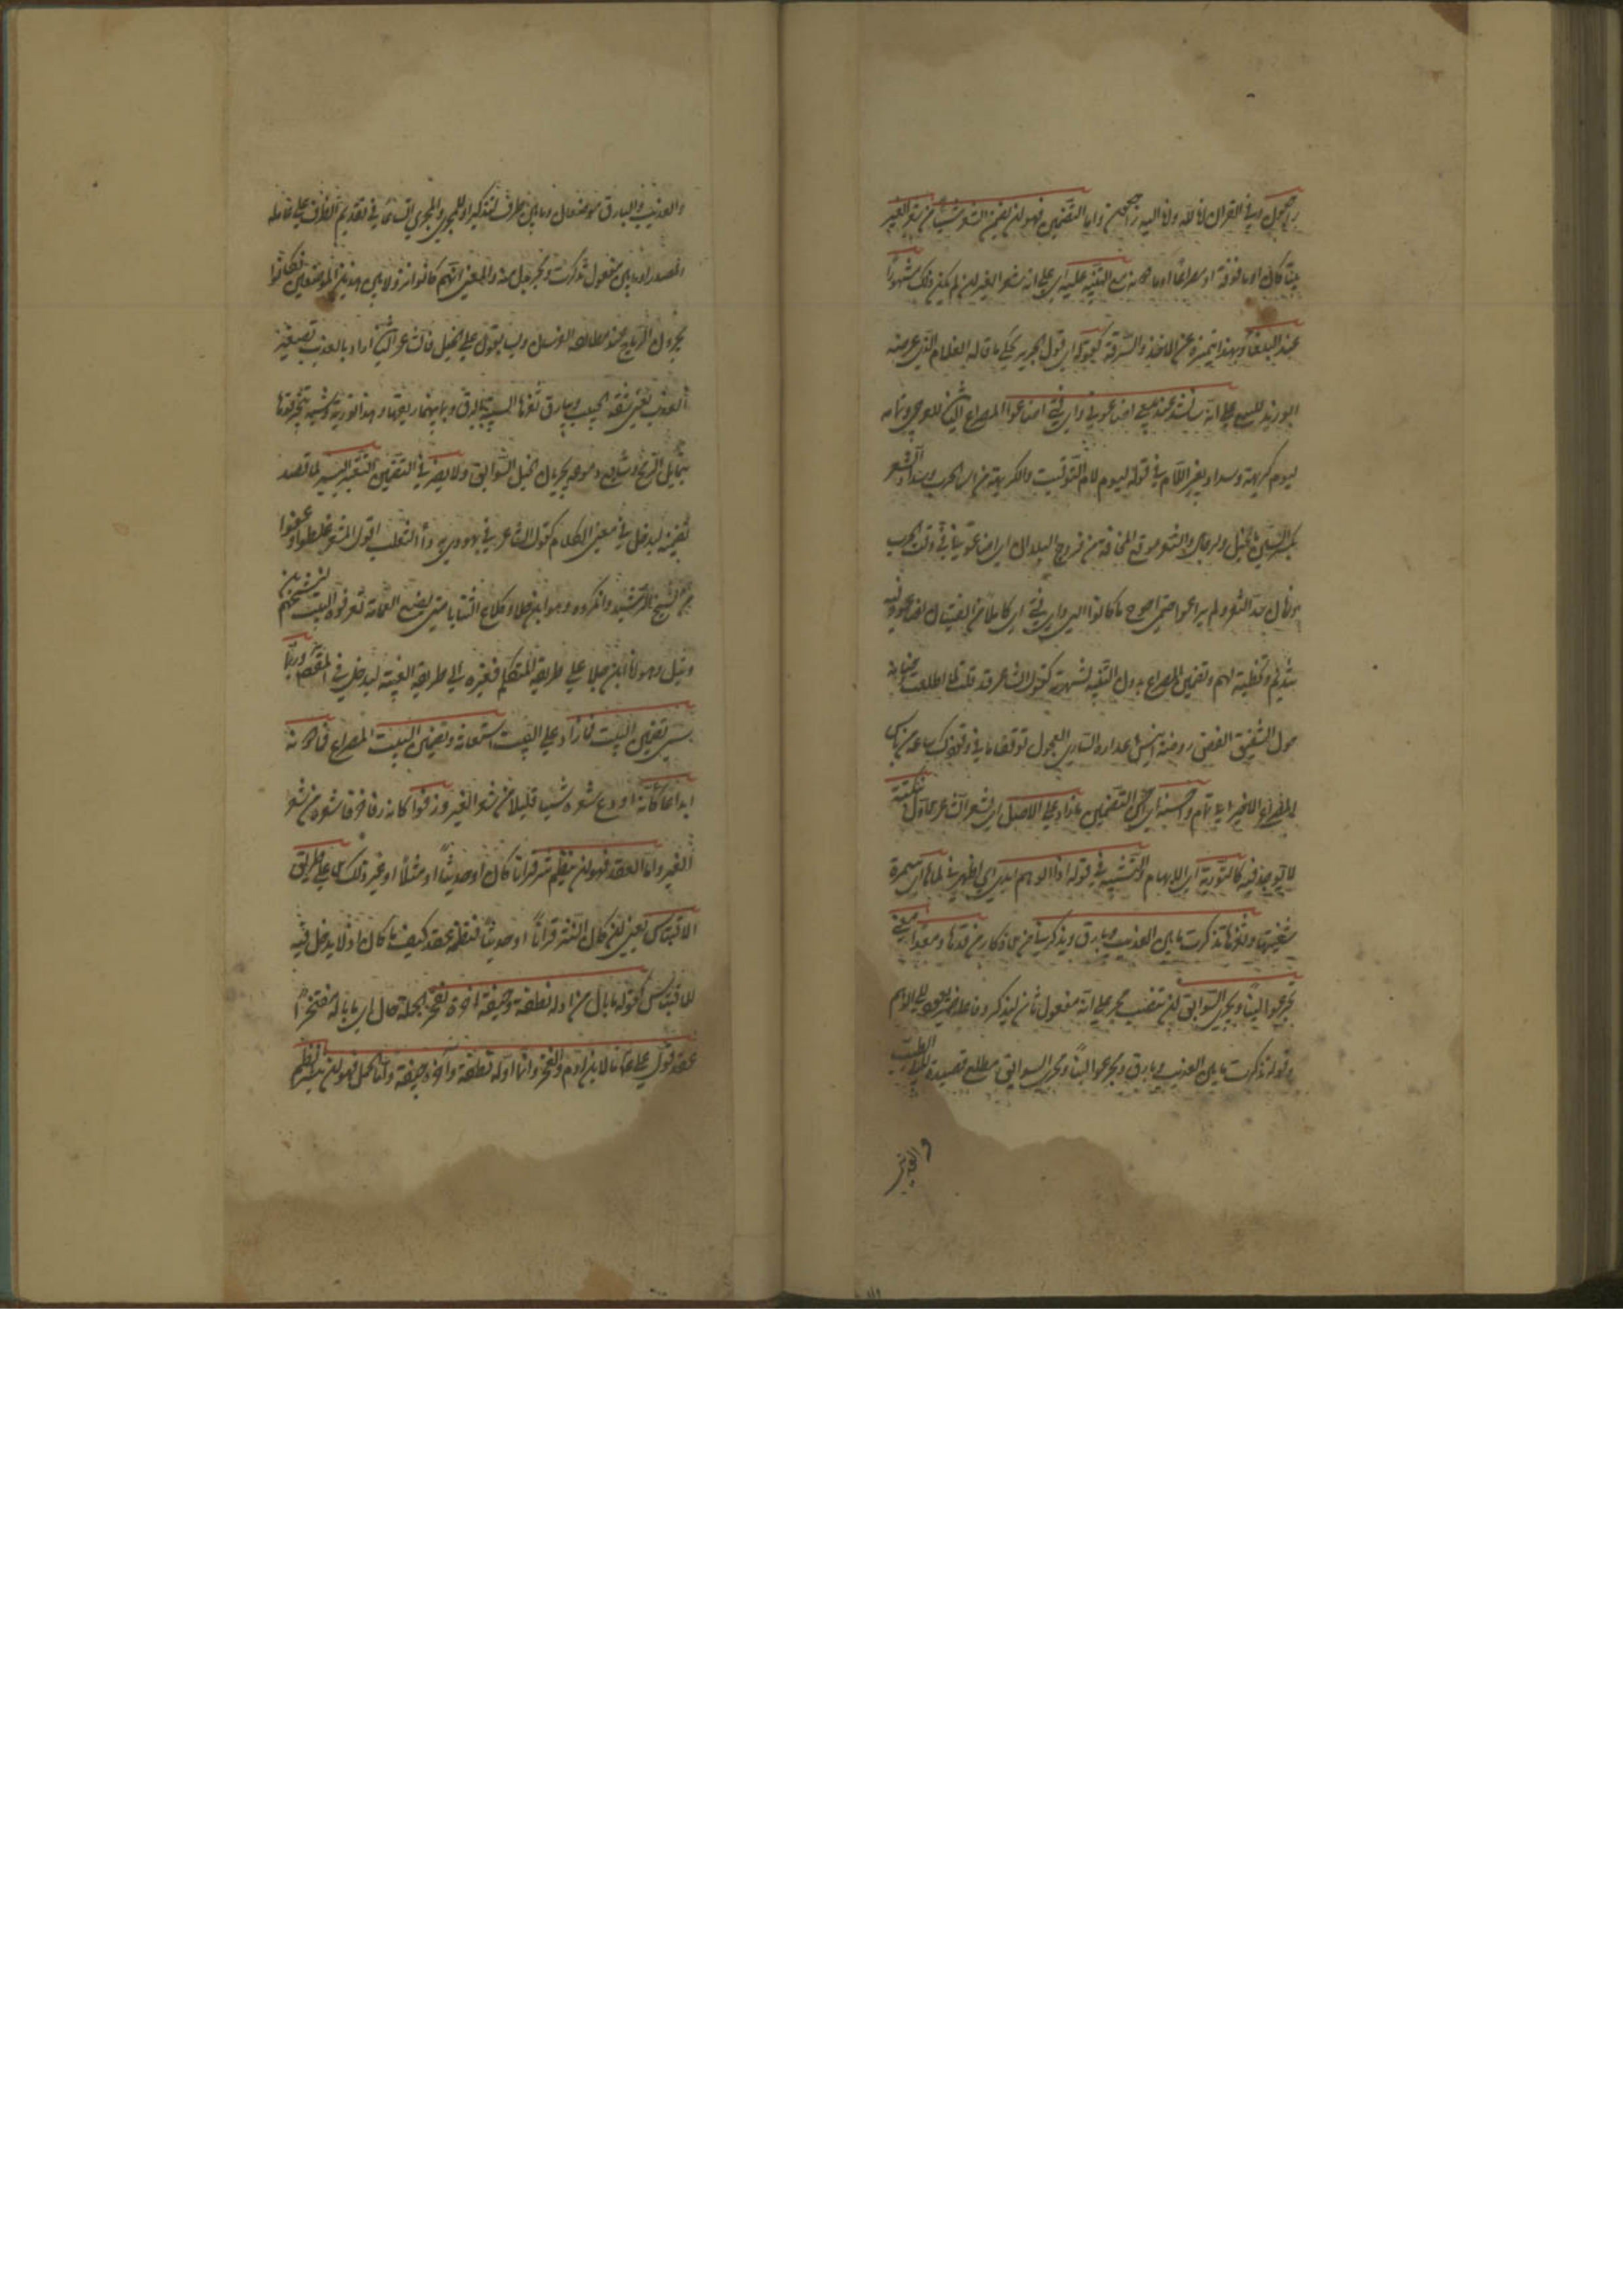 راجعون وفي القرآن انا لله وانا اليه راجعون واما التضمين فهو ان يضمن الشعر شيئا من شعر الغير
بيتا كان او ما فوقه او مصراعا او ما دونه مع التنبيه عليه اى على انه من شعر الغير ان لم يكن ذلك مشهورا
عند البلغاء وبهذا يتميز عن الاخذ والسرقة كقوله اى قول الحريرى يحكى ما قاله الغلام الذى عرضه
ابو زيد للبيع على انى سانشد عند بيعى اضاعونى واى فتى اضاعوا المصراع الثانى للعرجى وتمامه
ليوم كريهة وسداد ثغر اللام فى قوله ليوم لام التوقيت والكريهة من اسماء الحرب وسداد الثغر
بكسر السين بالخيل والرجال والثغر موضع المخافة من فروج البلدان اى اضاعونى فى وقت الحرب
وزمان سد الثغر ولم يراعوا حقى احوج ما كانوا الى واى فتى اى كاملا من الفتيان اضاعوا وفيه
تنديم وتخطئة لهم وتضمين المصراع بدون التنبيه لشهرته كقول الشاعر قد قلت لما اطلعت وجناته
حول الشقيق الغض روضة آس أعذاره السارى العجول توقفا ما فى وقوفك ساعة من باس
المصراع الاخير لابى تمام واحسنه اى احسن التضمين ما زاد على الاصل اى شعر الشاعر الاول بنكتة
لا توجد فيه كالتورية اى الايهام والتشبيه فى قوله اذا الوهم ابدى اى اظهر لى لماها اى سمرة
شفتيها وثغرها تذكرت ما بين العذيب وبارق ويذكرنى من الاذكار من قدها ومدامعى
مجر عوالينا ومجرى السوابق انتصب مجر على انه مفعول ثان ليذكر وفاعله ضمير يعود الى الوهم
وقوله تذكرت ما بين العذيب وبارق ومجر عوالينا ومجرى السوابق مطلع قصيدة لابى الطيب
والعذيب
والعذيب والبارق موضعان وما بين ظرف للتذكير او للمجر والمجرى اتساعا فى تقديم الظرف على عامله
المصدر او ما بين مفعول تذكرت ومجر بدل منه والمعنى انهم كانوا نزولا بين هذين الموضعين فكانوا
يجرون الرماح عند مطاردة الفرسان ويسابقون على الخيل فالشاعر الثانى اراد بالعذيب تصغير
العذب يعنى شفة الحبيب وببارق ثغرها الشبيه بالبرق وبما بينهما ريقها وهذا تورية وشبه تبختر قدها
بتمايل الرمح وتتابع دموعه بجريان الخيل السوابق ولا يضر فى التضمين التغيير اليسير لما قصد
تضمينه ليدخل فى معنى الكلام كقول الشاعر فى يهودى به داء الثعلب اقول لمعشر غلطوا وغضوا
من الشيخ الرشيد وانكروه هو ابن جلا وطلاع الثنايا متى يضع العمامة تعرفوه البيت لسحيم بن
وثيل وهو انا ابن جلا على طريقة المتكلم فغيره الى طريقة الغيبة ليدخل فى المقصود وربما
يسمى تضمين البيت فما زاد على البيت استعانة وتضمين البيت المصراع فما دونه
ايداعا كانه اودع شعره شيئا قليلا من شعر الغير ورفوا كانه رفا خرق شعره من شعر
الغير واما العقد فهو ان ينظم نثر قرآنا كان او حديثا او مثلا او غير ذلك لا على طريق
الاقتباس يعنى ان كان النثر قرآنا او حديثا فنظمه عقد كيف ما كان اذ لا يدخل فيه
للاقتباس كقوله ما بال من اوله نطفة وجيفة آخره يفخر الجملة حال اى ما باله مفتخرا
عقد قول على وما لابن آدم والفخر وانما اوله نطفة وآخره جيفة واما الحل فهو ان ينثر النظم